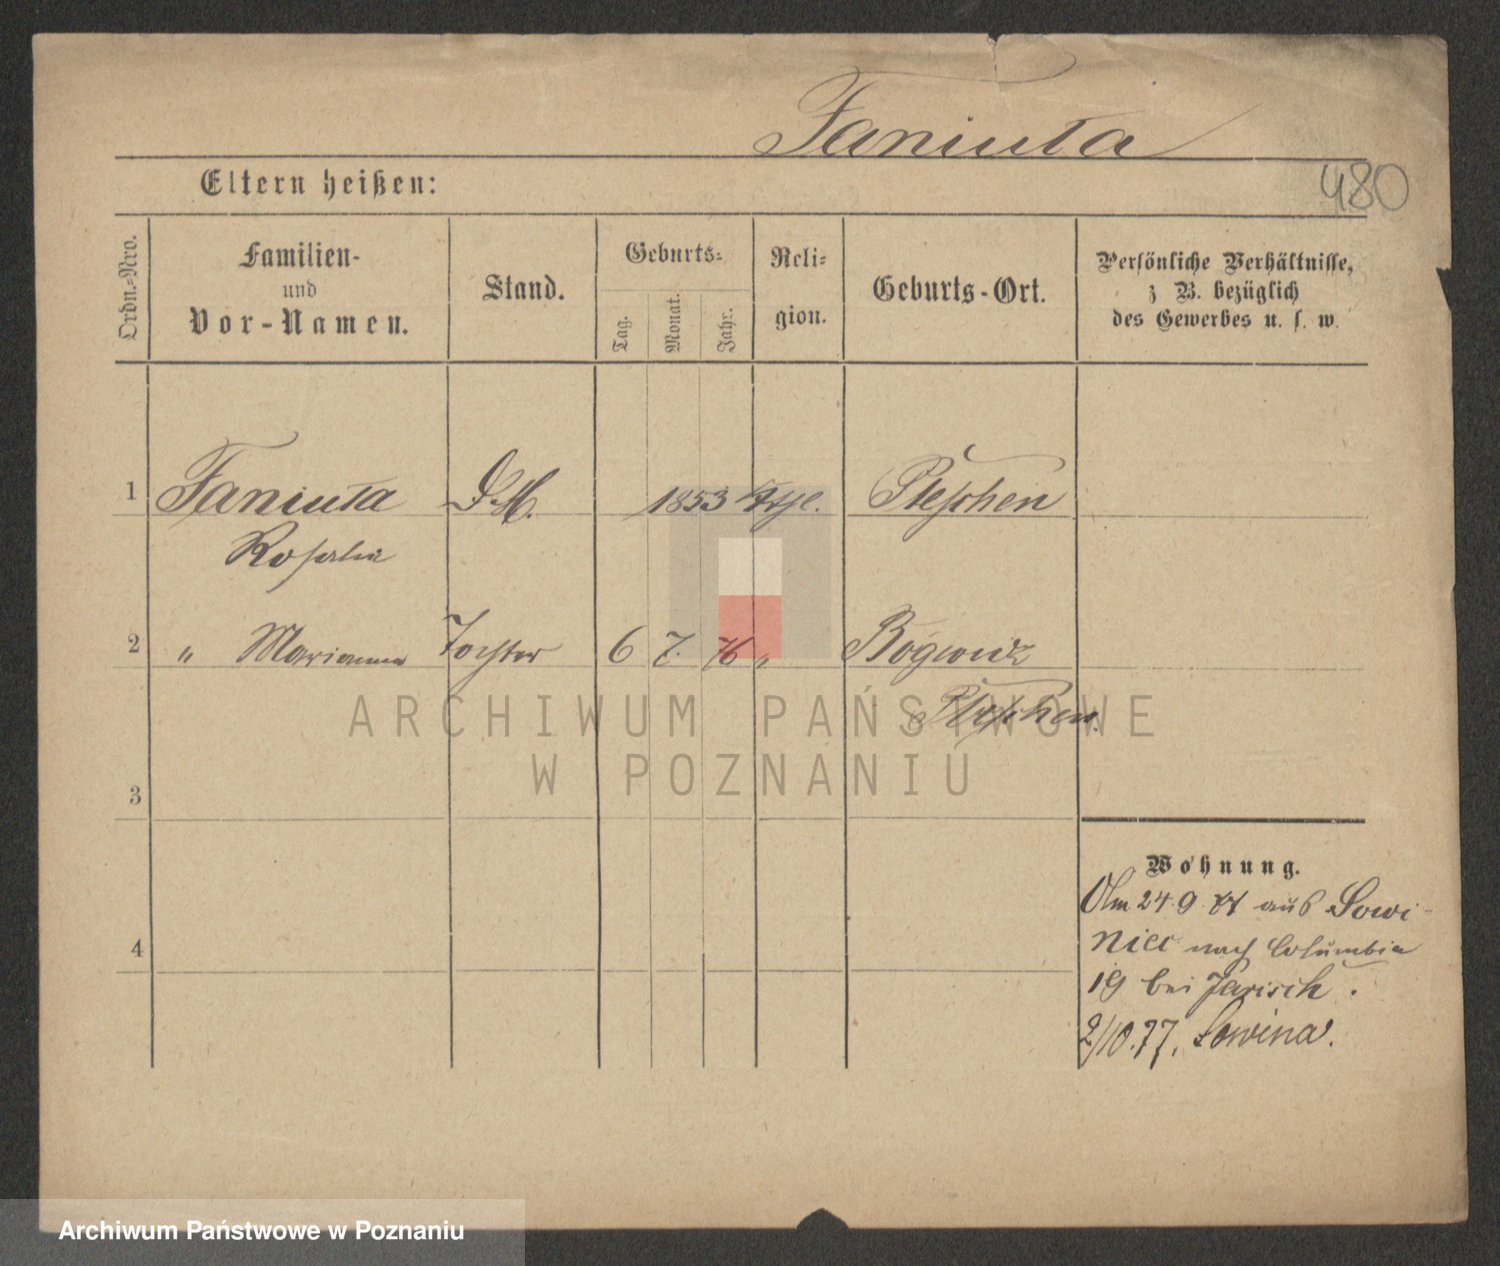 Faniuta
480
Eltern heißen:
Ordn.-Nro.
Familien-
und
Vor-Namen.
Stand.
Geburts-
Tag.
Monat.
Jahr.
Reli-
gion.
Geburts-Ort.
Persönliche Verhältnisse,
z B. bezüglich
des Gewerbes u. s. w.
1 Faniuta D. M. 1853 Pleschen
Rosalie
2 " Marianna Tochter 6 7. 76 " Bógwidz
Pleschen.
3
4
Wohnung.
Am 24.9 77 aus Sowi-
niec nach Columbia
19 bei Jarisch.
2/10.77. Sowina.
ARCHIWUM PAŃSTWOWE
W POZNANIU
Archiwum Państwowe w Poznaniu